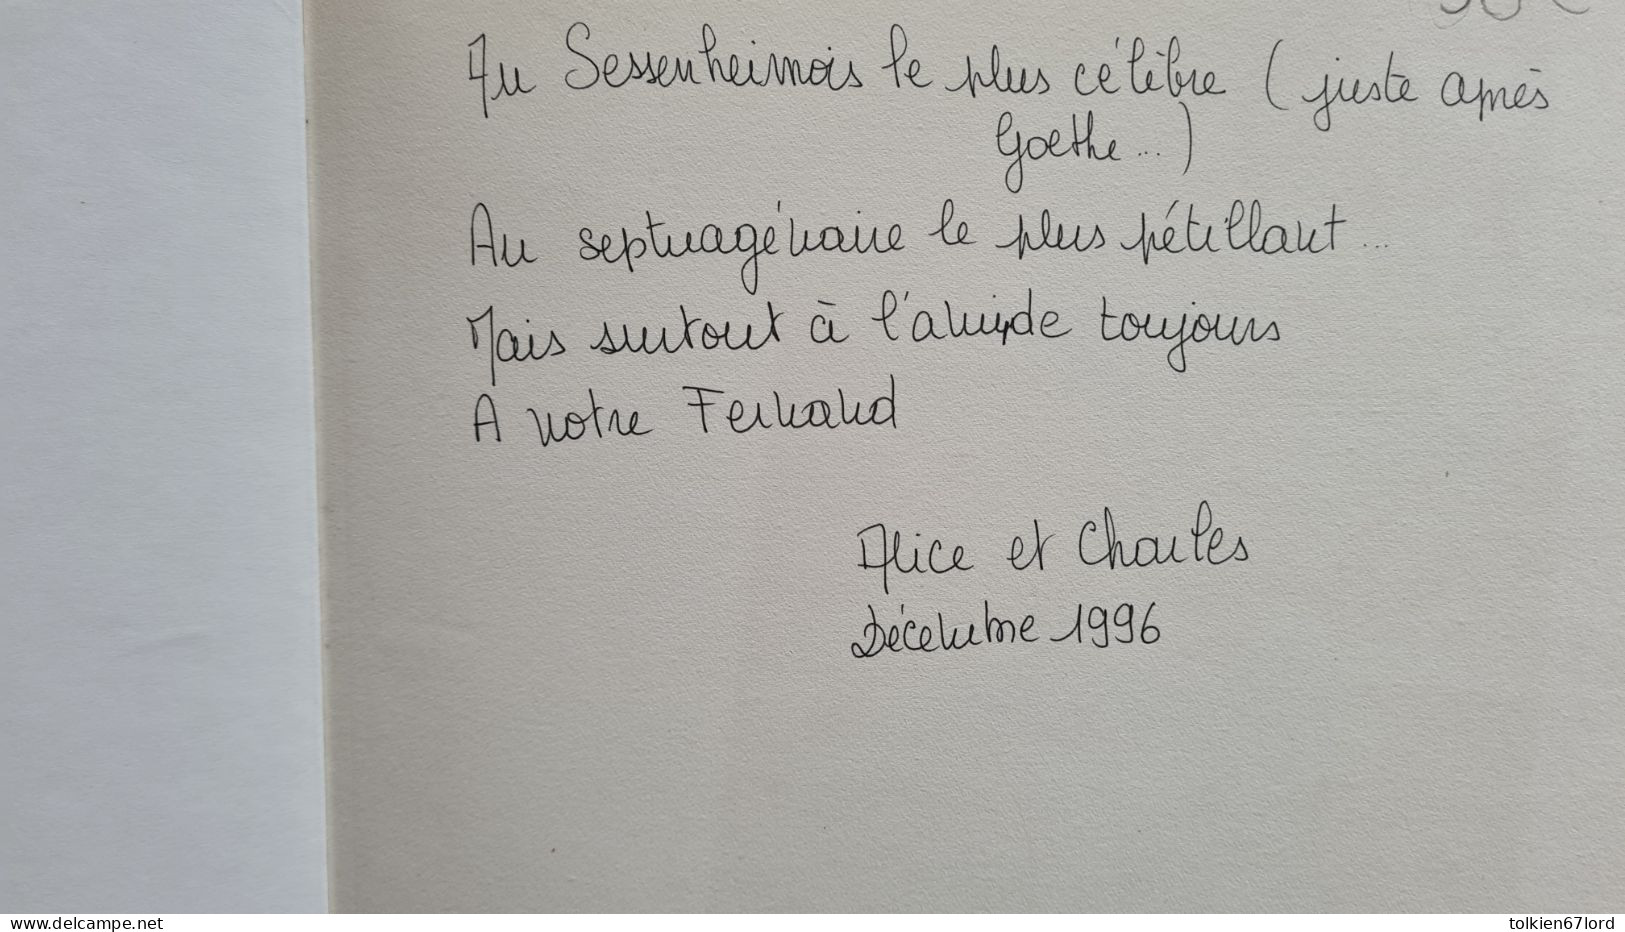 Au Sessenheimois le plus célèbre (juste après
Goethe...)
Au septuagénaire le plus pétillant...
Mais surtout à l'ami de toujours
A notre Fernand
Alice et Charles
Décembre 1996
www.delcampe.net
tolkien67lord